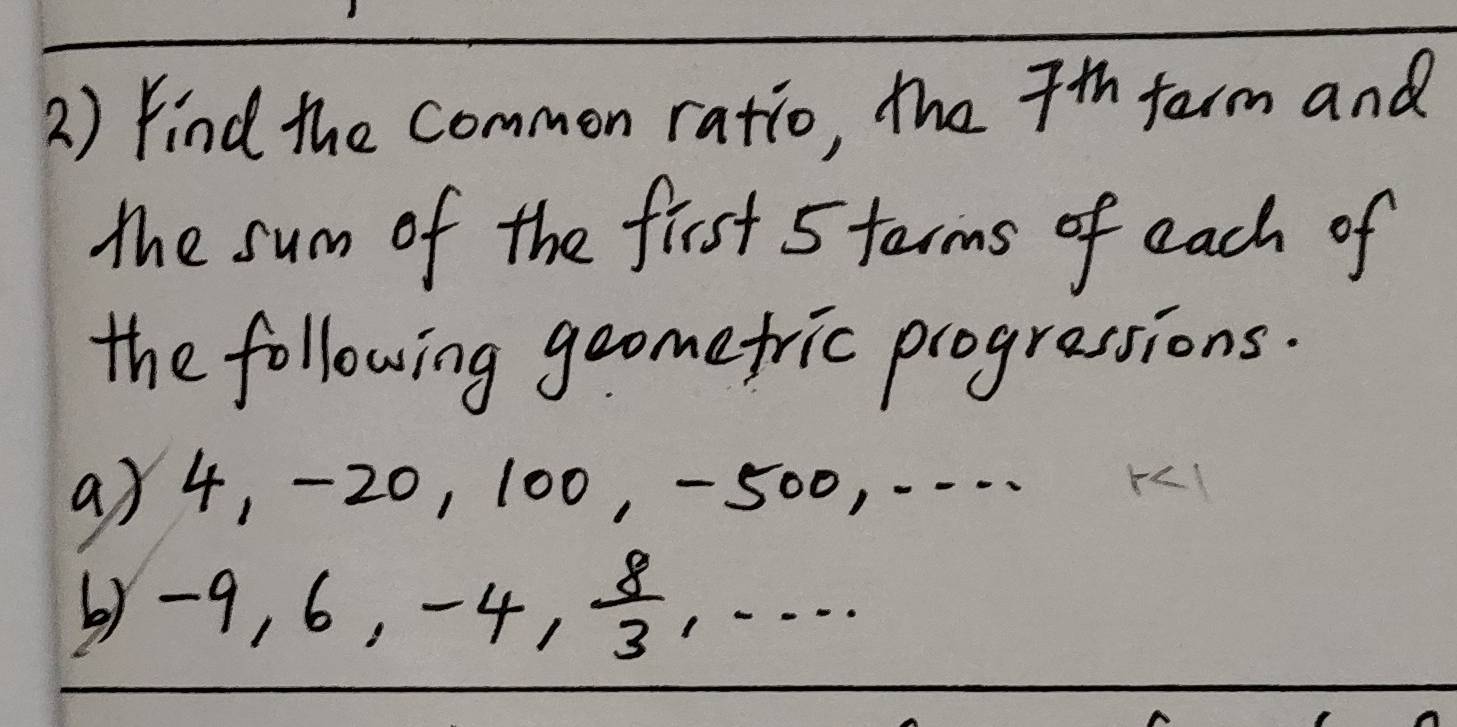 2) Find the common ratio, the 7th term and
the sum of the first 5 terms of each of
the following geometric progressions.
a) 4, -20, 100, -500, ---- r<1
b) -9, 6, -4, 8/3, ----